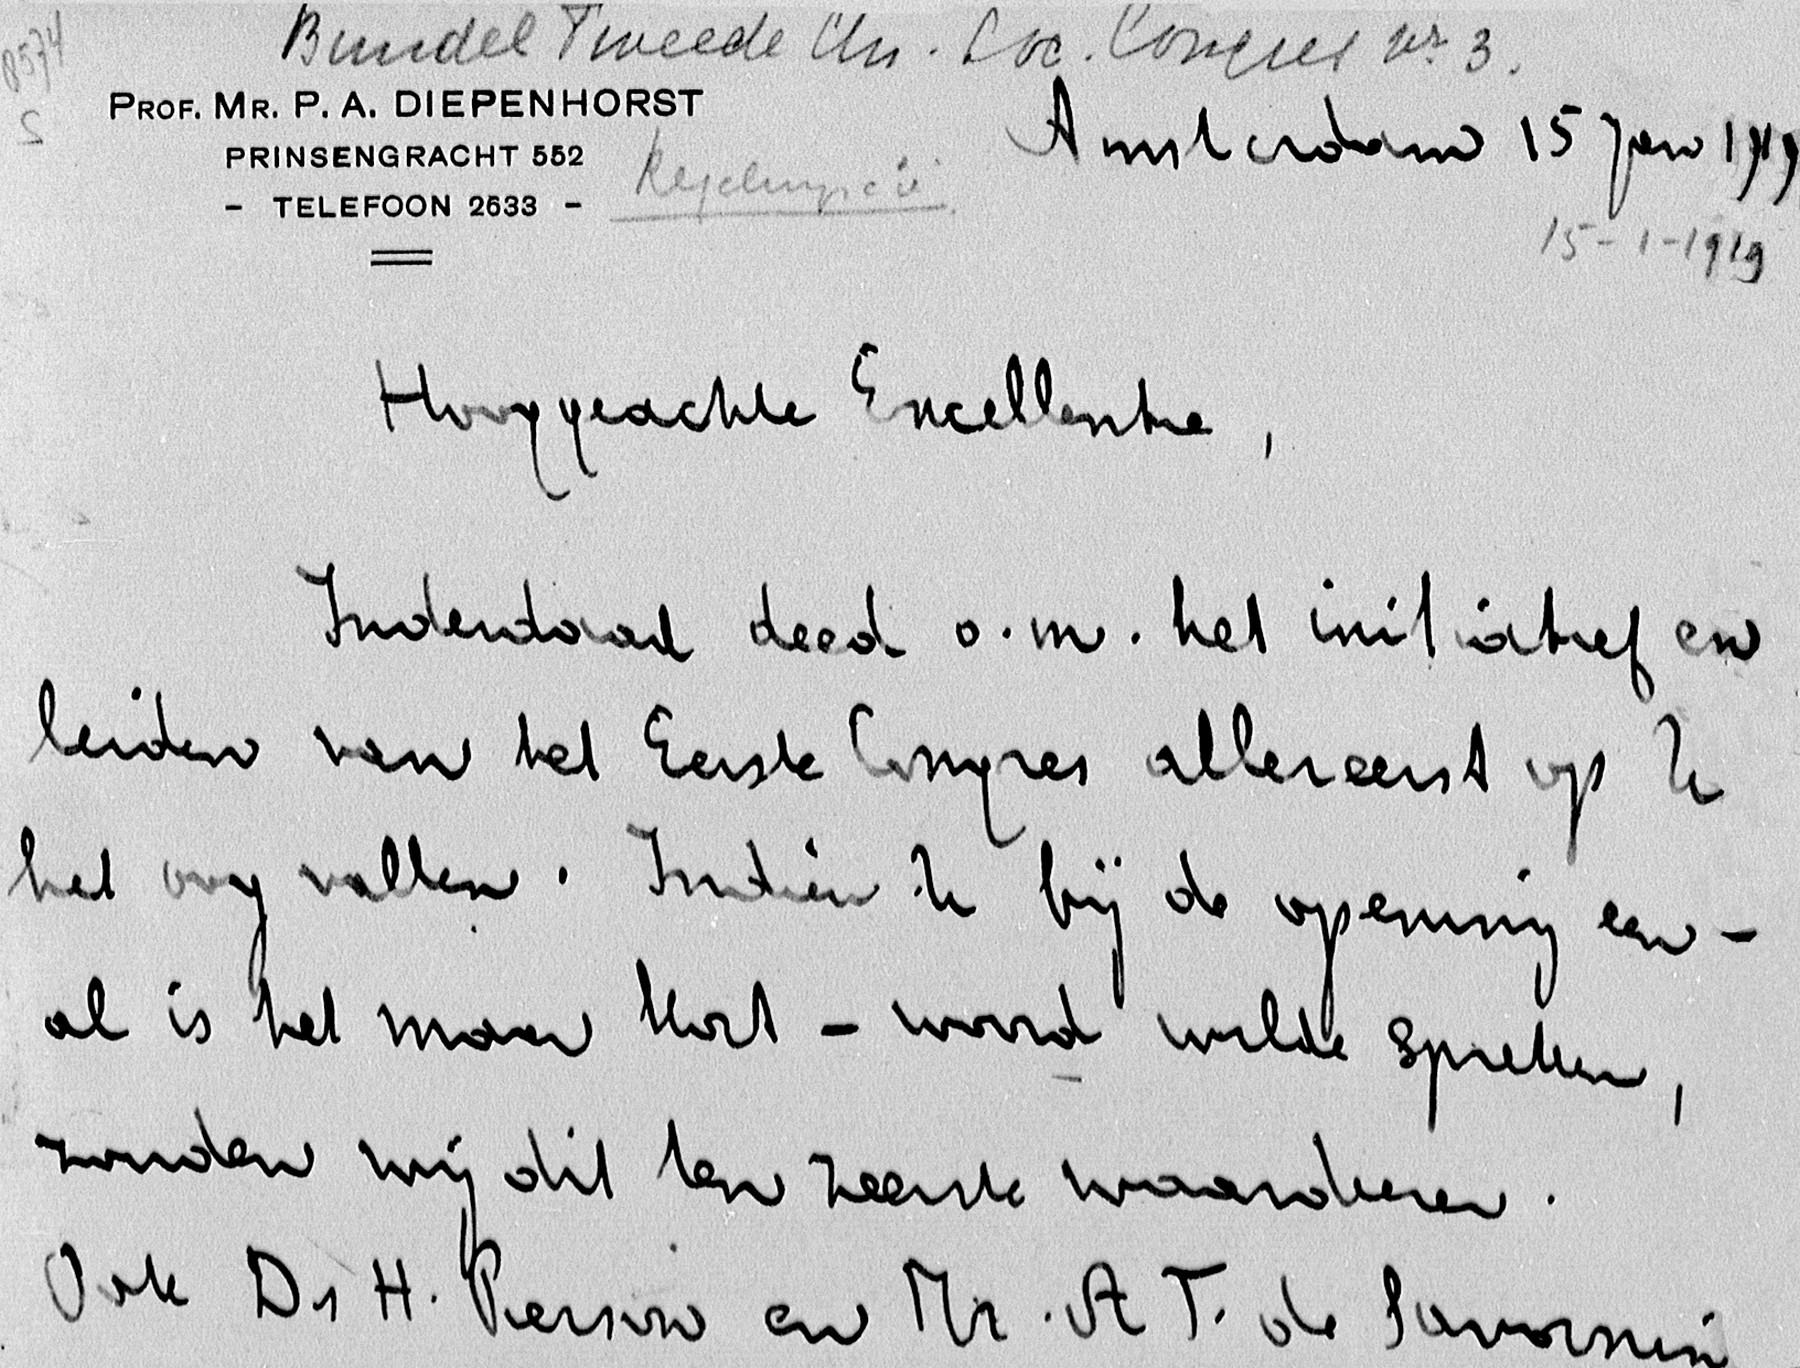 8574
Bundel Tweede Chr. Soc. Congres nr. 3.
PROF. MR. P. A. DIEPENHORST
PRINSENGRACHT 552
- TELEFOON 2633 -
Amsterdam 15 Jan 1919
15-1-1919
Hooggeachte Excellentie,
Inderdaad deed o.m. het initiatief en
leiden van het Eerste Congres allereerst op U
het oog vallen. Indien U bij de opening een -
al is het maar kort - woord wilde spreken,
zouden wij dit ten zeerste waardeeren.
Ook Ds H. Pierson en Mr. A F. de Savornin